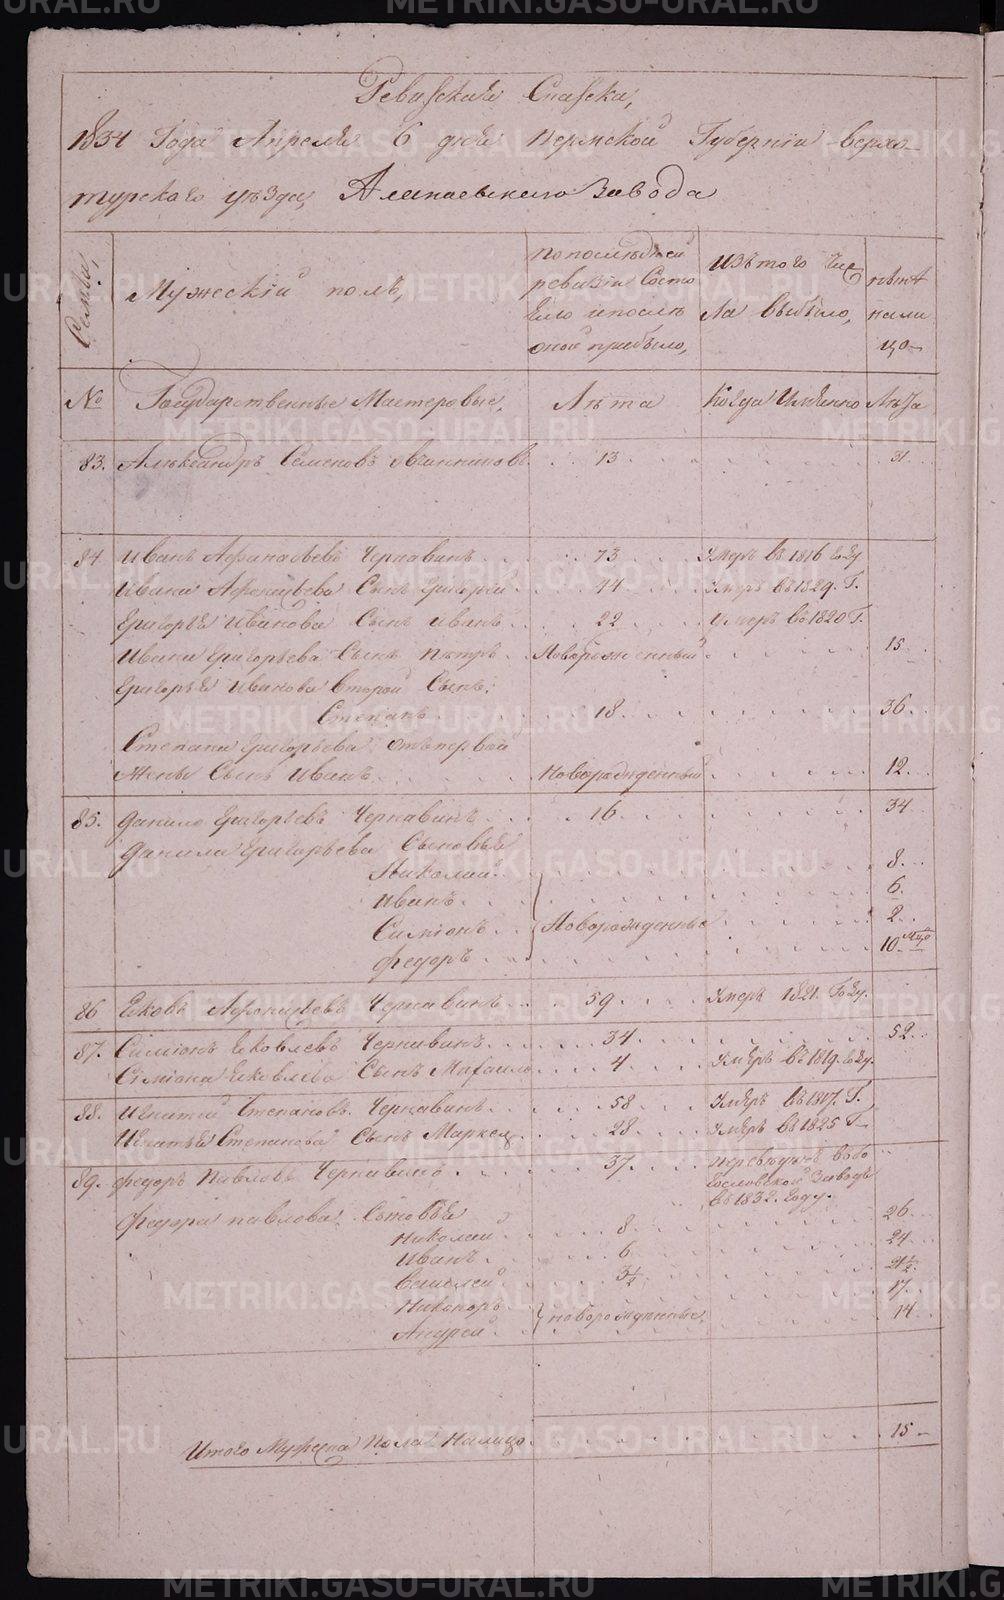 Ревизская Сказка,
1834 Года Апреля 6 дня Пермской Губернии Верхо-
турского уезда, Алапаевского Завода
Семьи,
Мужеский полъ,
По последней
ревизии Состо
яло и после
оной прибыло,
Изъ того Чис
ла выбыло,
ныне
нали
цо
№ Государственные Мастеровые, Лѣта Когда Именно Лѣта
83. Александръ Семеновъ 13 31
84. Иванъ Афанасьевъ Чернавинъ 73 Умеръ въ 1816 году
Ивана Афонасьева Сынъ Григорей 44 Умеръ въ 1829. Г.
Григорья Иванова Сынъ Иванъ 22 Умеръ въ 1820 Г.
Ивана Григорьева Сынъ Петръ Новорожденный 15
Григорья Иванова Второй Сынъ
Степанъ 18 36
Степана Григорьева отъ первой
Жены Сынъ Иванъ Новорожденный 12
85. Данило Григорьевъ Чернавинъ 16 34
Данила Григорьева Сыновья
Николай 8
Иванъ 6
Симионъ Новорожденные 2
Федоръ 10 мцо
86 Яковъ Афонасьевъ Чернавинъ 59 Умеръ 1821. Году
87. Симионъ Яковлевъ Чернавинъ 34 52
Симиона Яковлева Сынъ Михаило 4 Умеръ въ 1819. году
88. Игнатий Степановъ Чернавинъ 58 Умеръ въ 1817. Г.
Игнатья Степанова Сынъ Маркел 28 Умеръ въ 1825 Г
89. Федоръ Павловъ Чернавинъ 37 Переведенъ въ Бо
гословской Заводъ
въ 1832. году
Федора Павлова Сыновья
Николай 8 26
Иванъ 6 24
Василей 3½ 21½
Никаноръ 17
Андрей новорожденные 14
Итого Мужеска Пола Налицо 15
METRIKI.GASO-URAL.RU